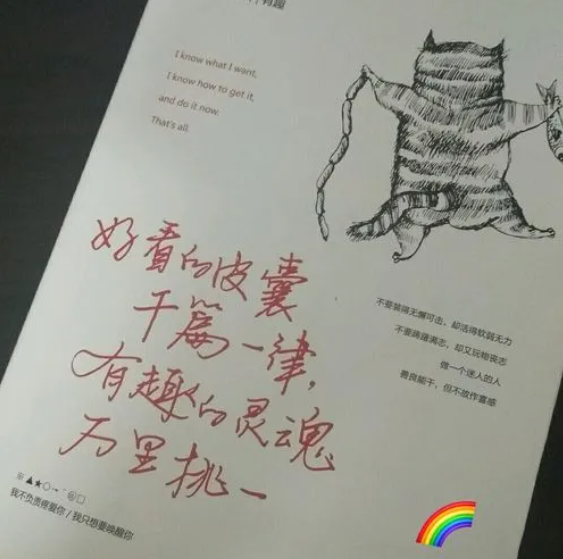 有趣
I know what I want,
I know how to get it,
and do it now.
That's all.
好看的皮囊
千篇一律，
有趣的灵魂
万里挑一
不要装得无懈可击，却活得软弱无力
不要踌躇满志，却又玩物丧志
做一个迷人的人
善良能干，但不故作喜感
※▲★○→¨㊣□
我不负责疼爱你 / 我只想要唤醒你